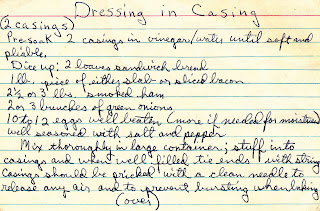 Dressing in Casing
(2 casings)
Pre-soak 2 casings in vinegar/water until soft and
pliable.
Dice up: 2 loaves sandwich bread
1 lb. piece of either slab or sliced bacon
2 1/2 or 3 lbs smoked ham
2 or 3 bunches of green onions
10 to 12 eggs well beaten (more if needed for moisture)
well seasoned with salt and pepper
Mix thoroughly in large container; stuff into
casings and when well filled tie ends with string
Casings should be pricked with a clean needle to
release any air and to prevent bursting when baking
(over)